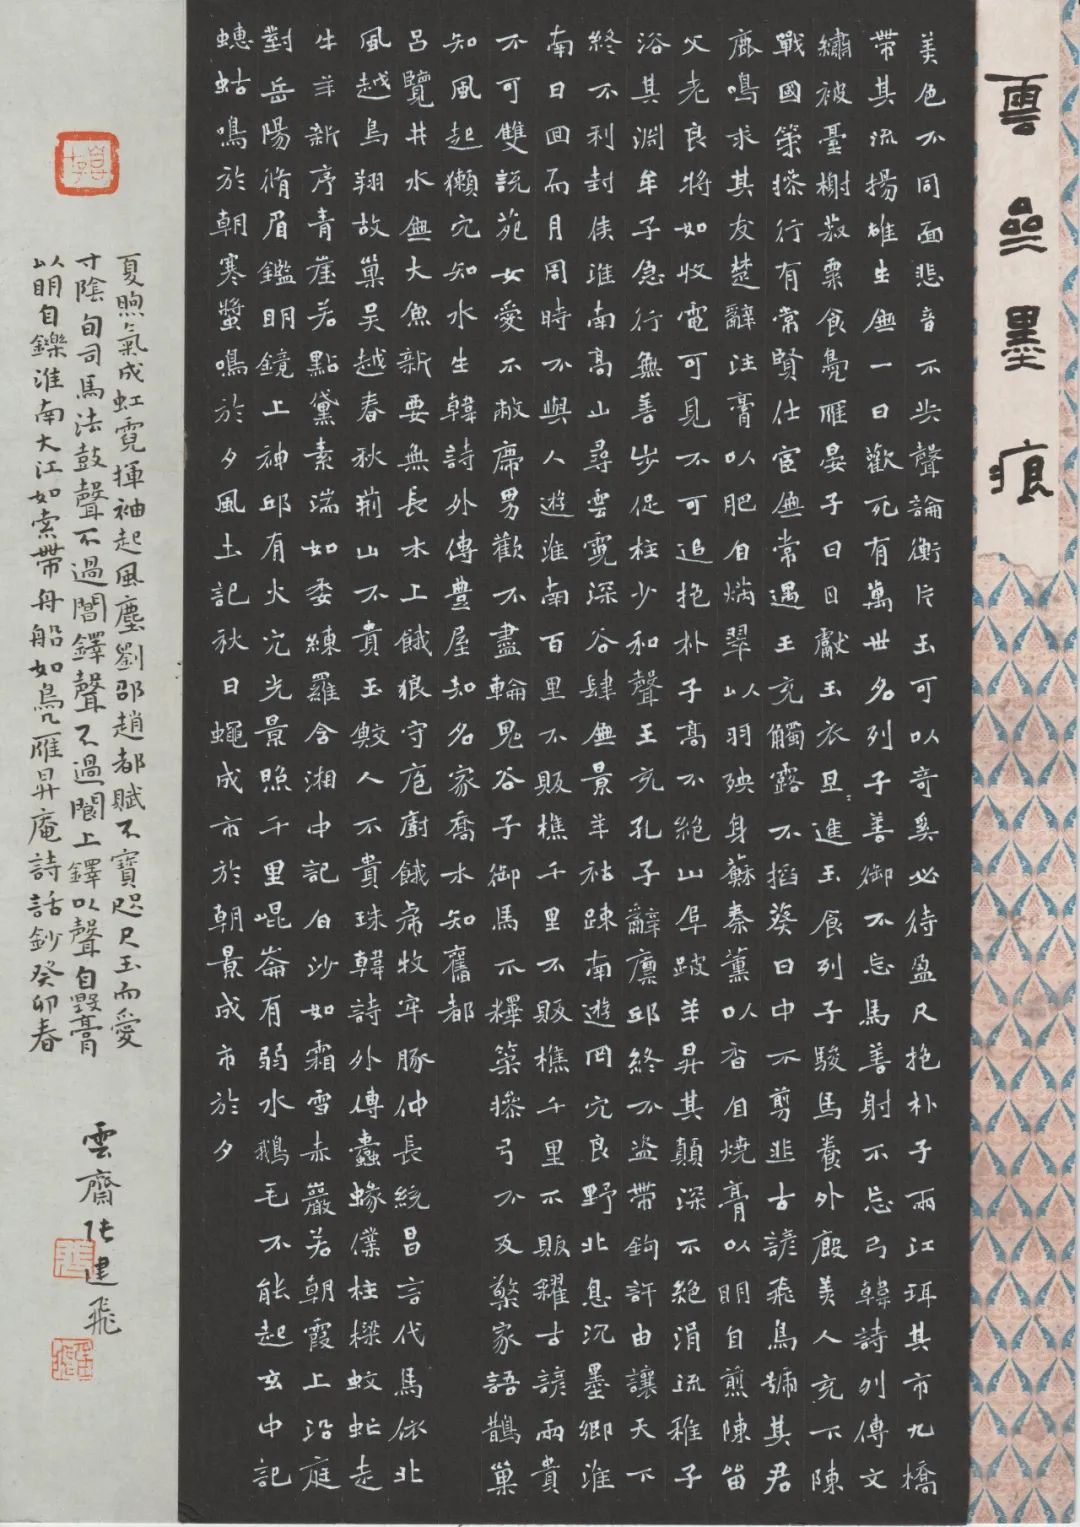 雲無墨痕
美色不同面悲音不共聲論衡片玉可以奇奚必待盈尺抱朴子兩江珥其市九橋
帶其流揚雄生無一日歡死有萬世名列子善御不忘馬善射不忘弓韓詩列傳文
繡被臺榭菽粟食鳧雁晏子日日獻玉衣旦旦進玉食列子駿馬養外廄美人充下陳
戰國策操行有常賢仕宦無常遇王充觸露不掐葵日中不剪韭古諺飛鳥號其君
鹿鳴求其友楚辭注膏以肥自炳翠以羽殃身蘇秦薰以香自燒膏以明自煎陳留
父老良將如收電可見不可追抱朴子高不絕山阜跛羊昇其顛深不絕涓流稚子
浴其淵牟子急行無善步促柱少和聲王充孔子辭廩邱終不盜帶鉤許由讓天下
終不利封侯淮南高山尋雲霓深谷肆無景羊祜疎南遊罔穴良野北息沉墨鄉淮
南日回而月周時不與人遊淮南百里不販樵千里不販樵千里不販糴古諺兩貴
不可雙說苑女愛不敝席男歡不盡輪鬼谷子御馬不釋策操弓不反檠家語鵲巢
知風起獺穴知水生韓詩外傳豊屋知名家喬木知舊都
呂覽井水無大魚新要無長木上餓狼守庖廚餓虎牧牢豚仲長統昌言代馬依北
風越鳥翔故巢吳越春秋荊山不貴玉鮫人不貴珠韓詩外傳蠹蝝仆柱樑蚊虻走
牛羊新序青崖若點黛素湍如委練羅含湘中記白沙如霜雪赤巖若朝霞上沿庭
對岳陽脩眉鑑明鏡上神邱有火穴光景照千里崐崙有弱水鵝毛不能起玄中記
蟪蛄鳴於朝寒螿鳴於夕風土記秋日蠅成市於朝景成市於夕
夏煦氣成虹霓揮袖起風塵劉邵趙都賦不寶咫尺玉而愛
寸陰旬司馬法鼓聲不過閶鐸聲不過閬上鐸以聲自毀膏
以明自鑠淮南大江如索帶舟船如鳧雁昇庵詩話鈔癸卯春
雲齋張建飛